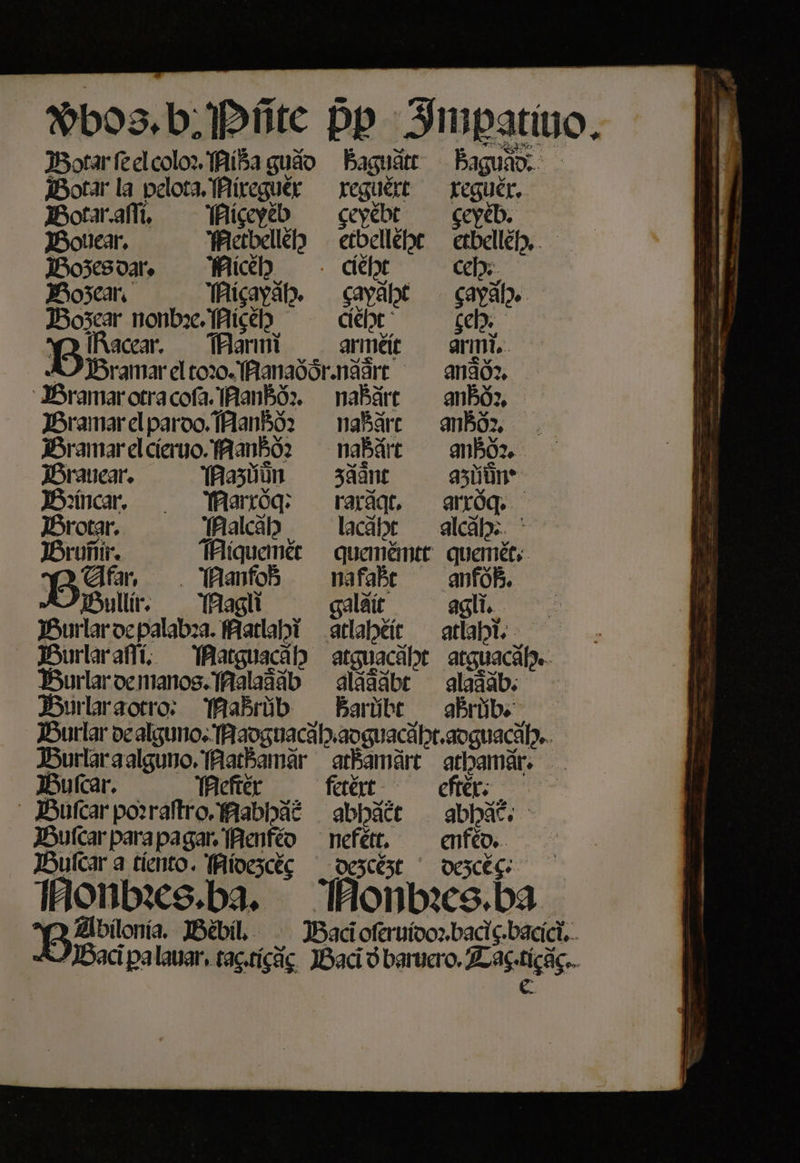 Vbos.b. Pñte p̃p Impatiuo.
Botar se el color. Niha guăo haguătt haguăo.
Botar la pelota. Nireguĕr reguĕrt reguĕr.
Botar.assi, Niçeyĕb çeyĕbt çeyĕb.
Bouear. Netbellĕh etbellĕht etbellĕh.
Bozes dar. Nicĕh ciĕht ceh.
Bozear. Niçayăh. çayăht çayăh.
Bozear nonbre. Niçĕh ciĕht çeh.
BRacear. Narmi armĕit armi.
Bramar el toro. Nanadŏr. năărt anăŏr,
Bramar otra cosa. Nanhŏr. nahărt anhŏr,
Bramar el pardo. Nanhŏr nahărt anhŏr,
Bramar el cieruo. Nanhŏr nahărt anhŏr.
Brauear. Naziiŭn zăănt aziiŭn
Brincar. Narrŏq: rarăqt. arrŏq.
Brotar. Nalcăh lacăht alcăh.
Bruñir. Niquemĕt quemĕmtt quemĕt.
BUfar. Nanfoh nafaht anfŏh.
Bullir. Nagli galăit agli.
Burlar de palabra. Natlahi atlahĕit atlahi.
Burlar assi, Natguacăh atguacăht atguacăh.
Burlar de manos. Nalaăăb alăăăbt alaăăb.
Burlar a otro: Nahrŭb harŭbt ahrŭb.
Burlar de alguno. Nadguacăh. adguacăht. adguacăh.
Burlar a alguno. Nathamăr athamărt athamăr.
Buscar. Neftĕx fetĕxt eftĕx.
Buscar por rastro. Nabhăt abhătt abhăt.
Buscar para pagar. Nenfĕd nefĕtt. enfĕd.
Buscar a tiento. Nidezcĕç dezcĕzt dezcĕç.
Nonbres.ba. Nonbres.ba
BAbilonia. Bĕbil. Baci o seruidor. baciç. bacici.
Baci pa lauar. taç. tiçăç Baci d̃ baruero. Taç. tiçăç.
c